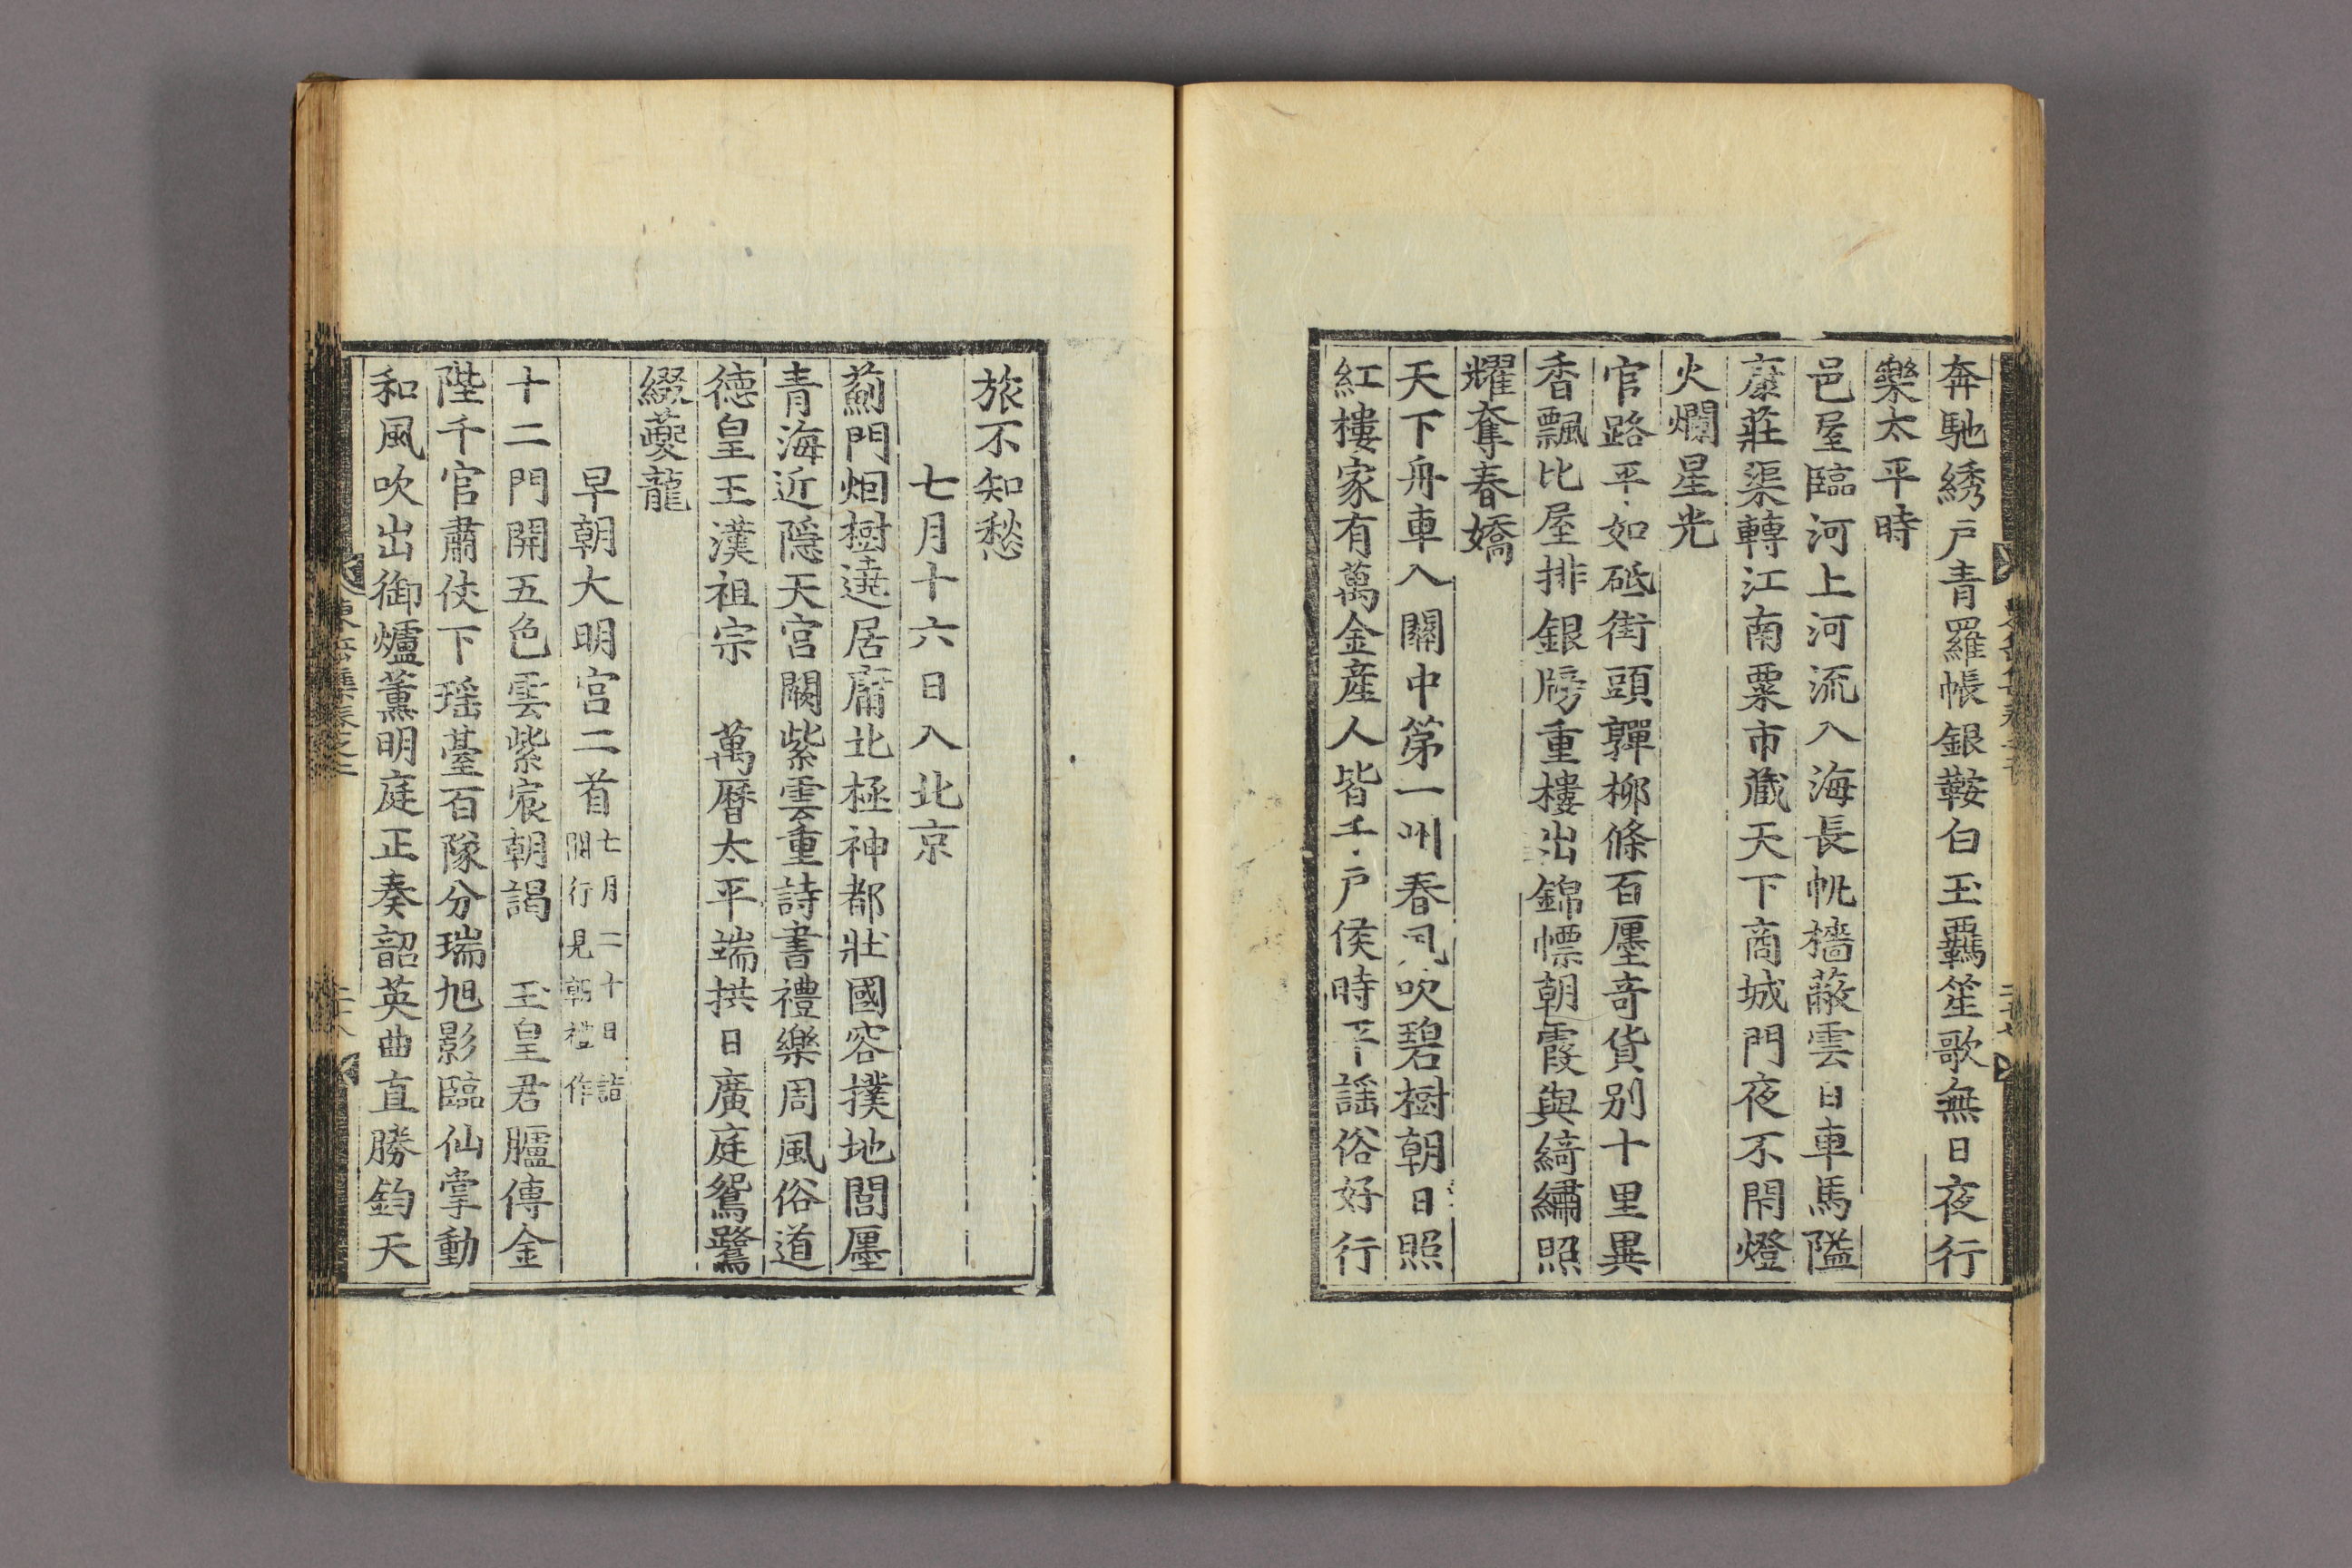 奔馳綉戶青羅帳銀鞍白玉羈笙歌無日夜行
樂太平時
邑屋臨河上河流入海長帆檣蔽雲日車馬隘
康莊渠轉江南粟市藏天下商城門夜不閉燈
火爛星光
官路平如砥街頭嚲柳條百廛奇貨别十里異
香飄比屋排銀牓重樓出錦幖朝霞與綺繡照
耀奪春嬌
天下舟車入關中第一州春風吹碧樹朝日照
紅樓家有萬金産人皆千戶侯時平謡俗好行
旅不知愁
七月十六日入北京
薊門烟樹遶居庸北極神都壯國容撲地閭廛
青海近隱天宫闕紫雲重詩書禮樂周風俗道
德皇王漢祖宗 萬曆太平端拱日廣庭鴛鷺
綴夔龍
早朝大明宫二首七月二十日詣
闕行見朝禮作
十二門開五色雲紫宸朝謁 玉皇君臚傳金
陛千官肅仗下瑶臺百隊分瑞旭影臨仙掌動
和風吹出御爐薰明庭正奏韶英曲直勝鈞天